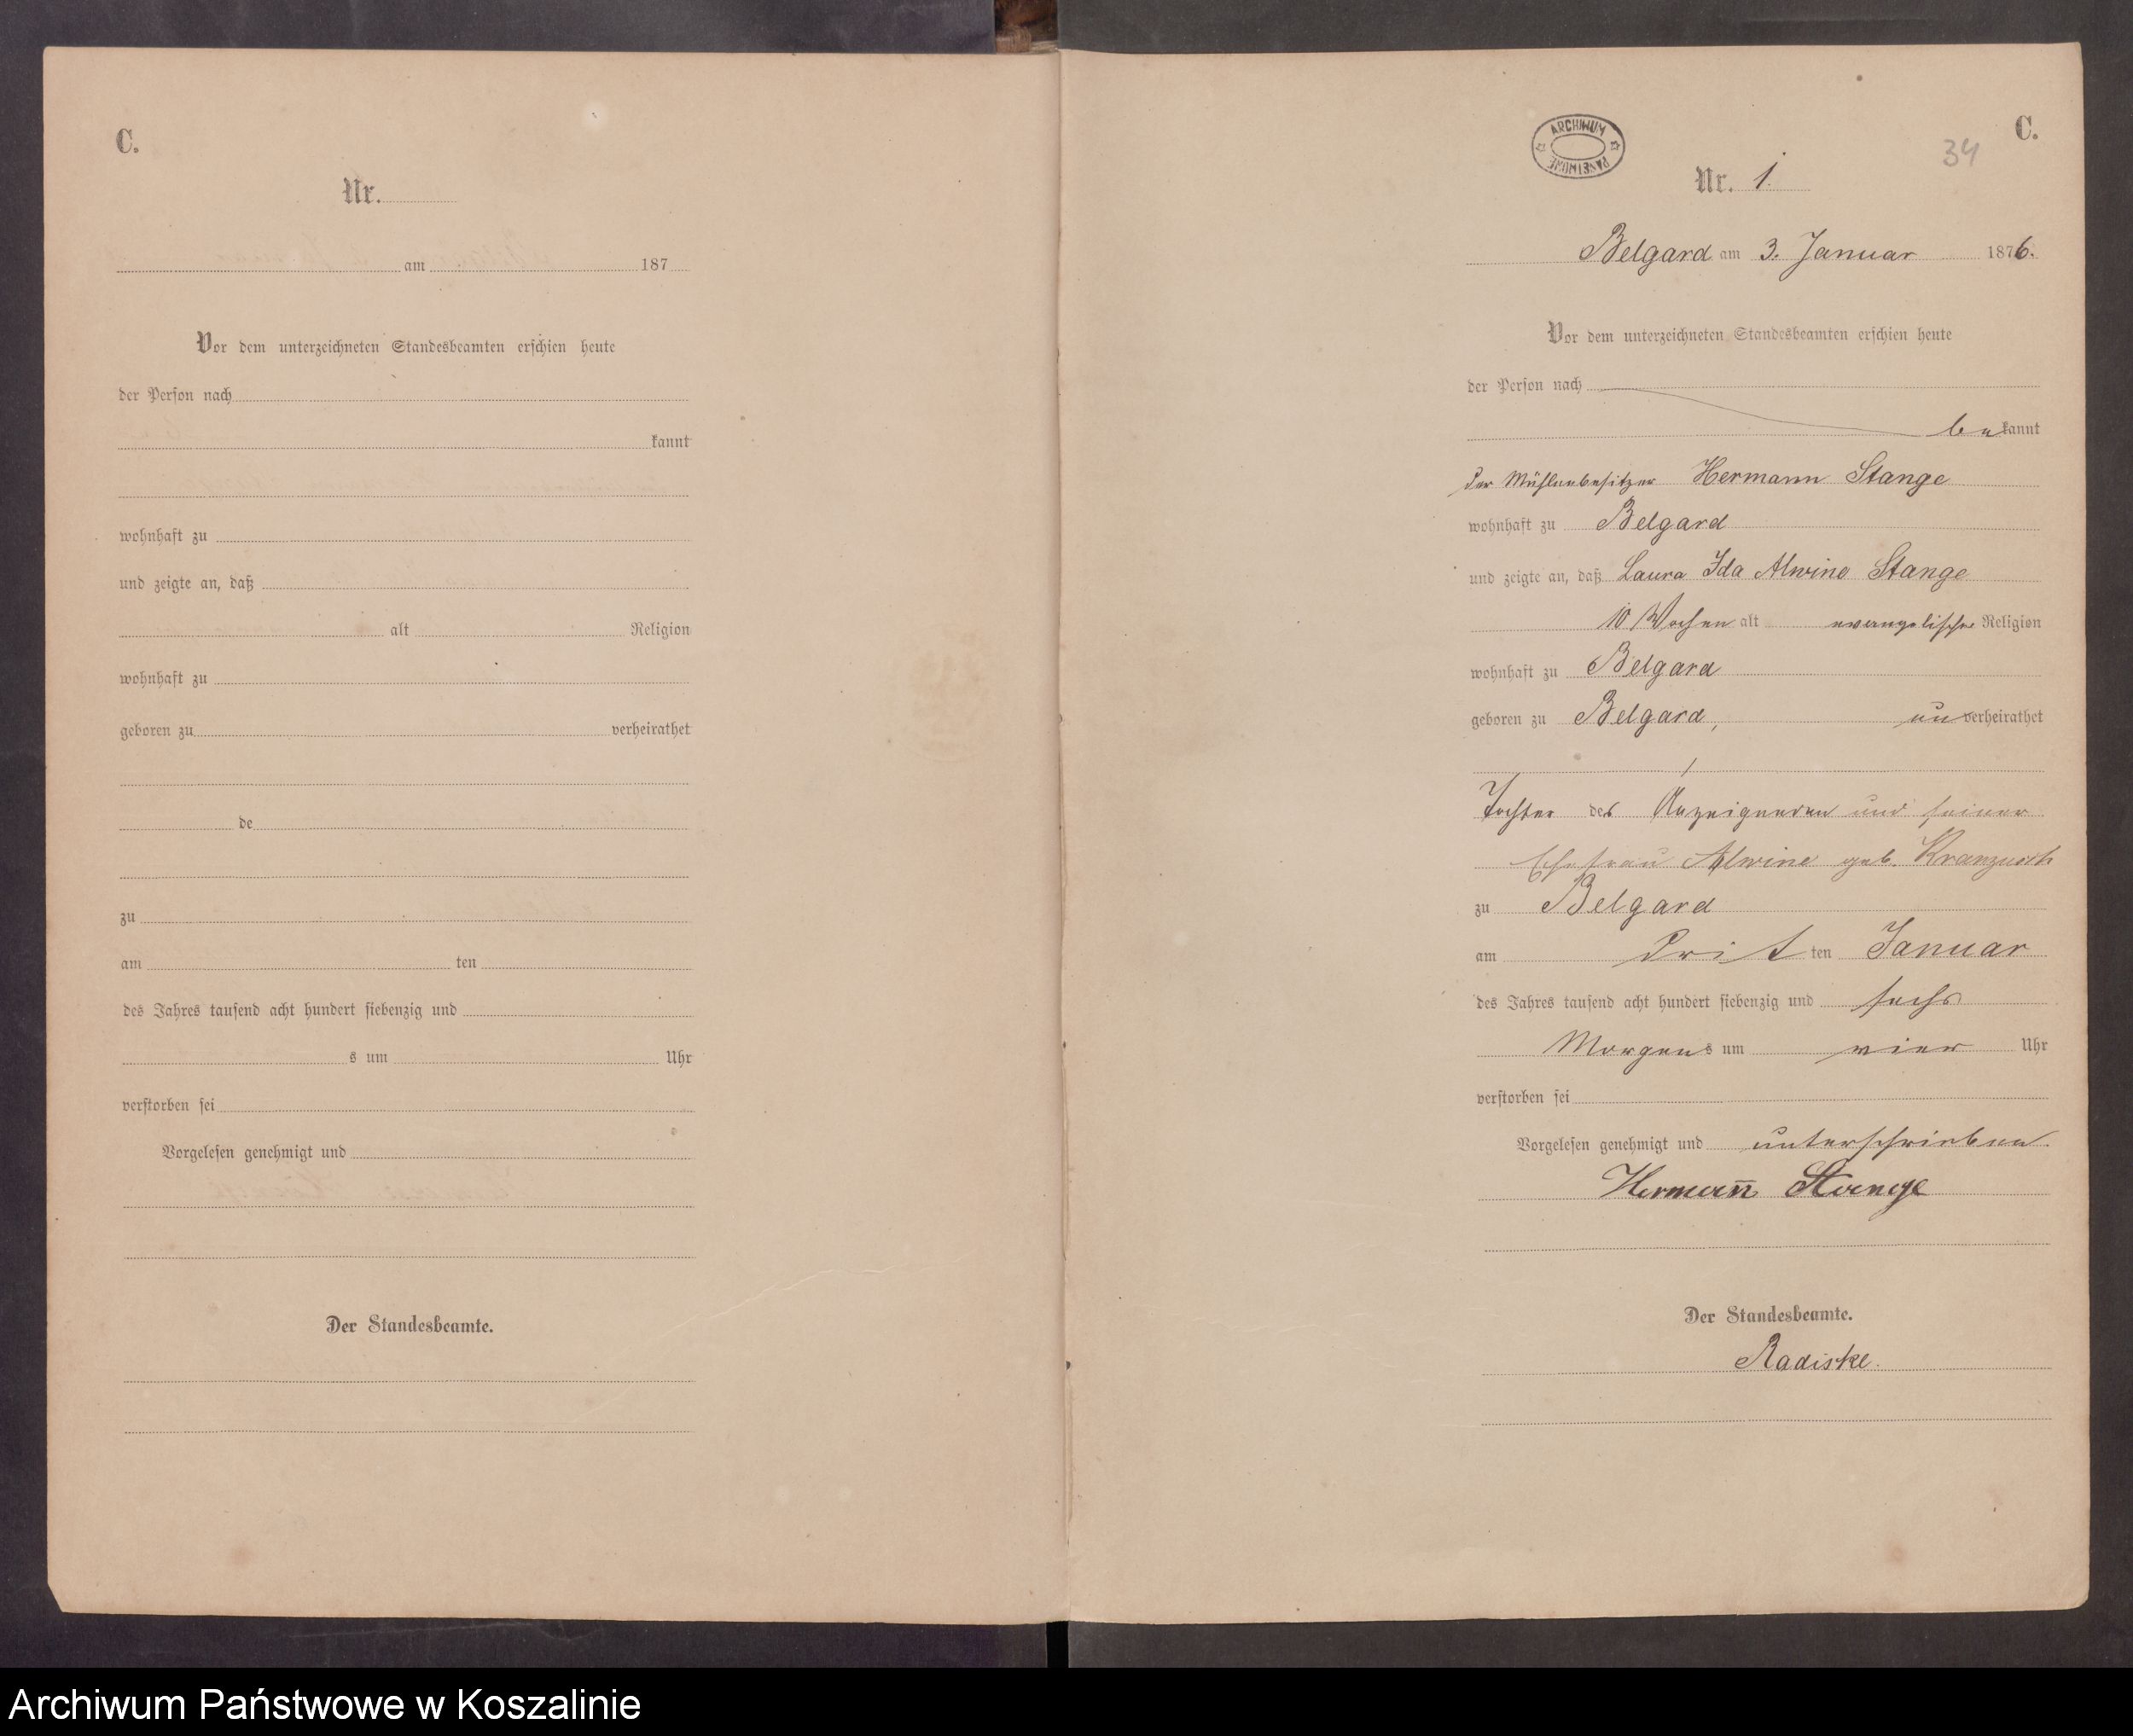 C.
Nr.
am 187
Vor dem unterzeichneten Standesbeamten erschien heute
der Person nach
kannt
wohnhaft zu
und zeigte an, daß
alt Religion
wohnhaft zu
geboren zu verheirathet
de
zu
am ten
des Jahres tausend acht hundert siebenzig und
s um Uhr
verstorben sei
Vorgelesen genehmigt und
Der Standesbeamte.
ARCHIWUM PAŃSTWOWE
34
C.
Nr. 1.
Belgard am 3. Januar 1876.
Vor dem unterzeichneten Standesbeamten erschien heute
der Person nach
bekannt
der Mühlenbesitzer Hermann Stange
wohnhaft zu Belgard
und zeigte an, daß Laura Ida Alwine Stange
10 Wochen alt evangelischer Religion
wohnhaft zu Belgard
geboren zu Belgard, unverheirathet
Tochter des Anzeigenden und seiner
Ehefrau Alwine geb.
zu Belgard
am dritten Januar
des Jahres tausend acht hundert siebenzig und sechs
Morgens um vier Uhr
verstorben sei
Vorgelesen genehmigt und unterschrieben
Hermann Stange
Der Standesbeamte.
Radiske.
Archiwum Państwowe w Koszalinie